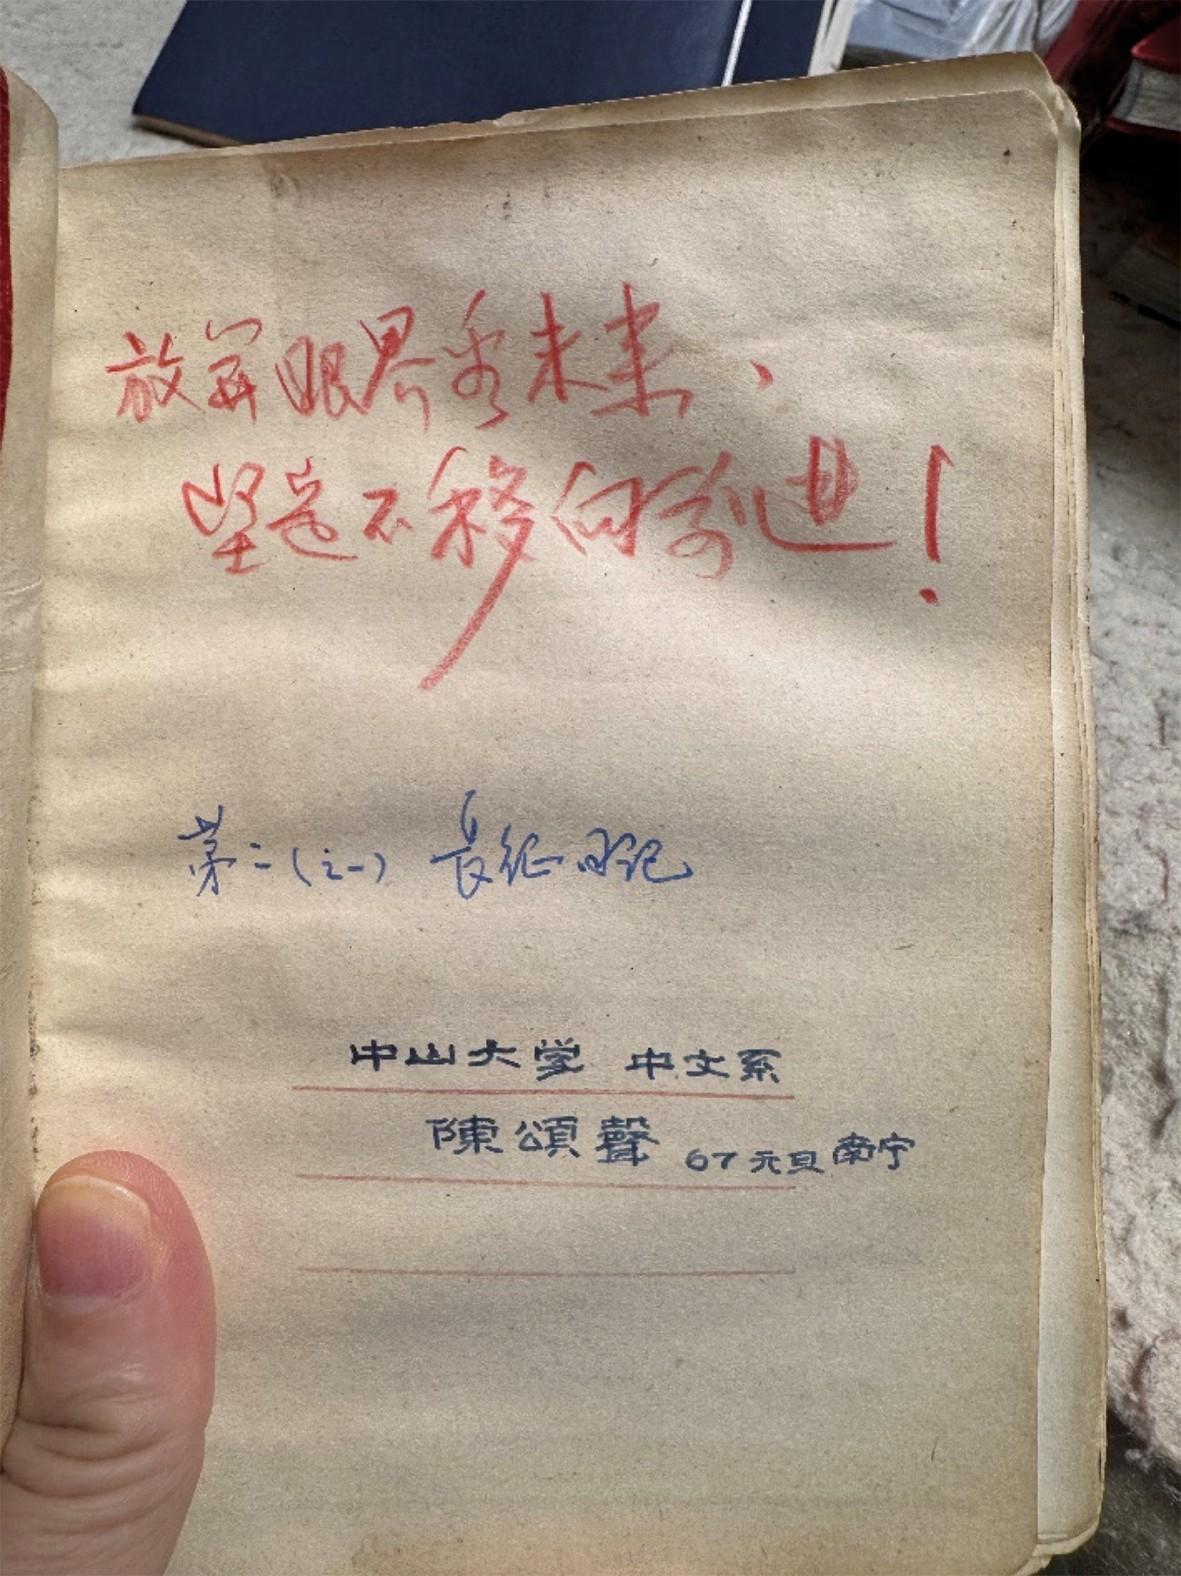 放开眼界看未来，
坚定不移向前进！
第二（之一） 长征日记
中山大学 中文系
陳頌聲 67元旦南宁